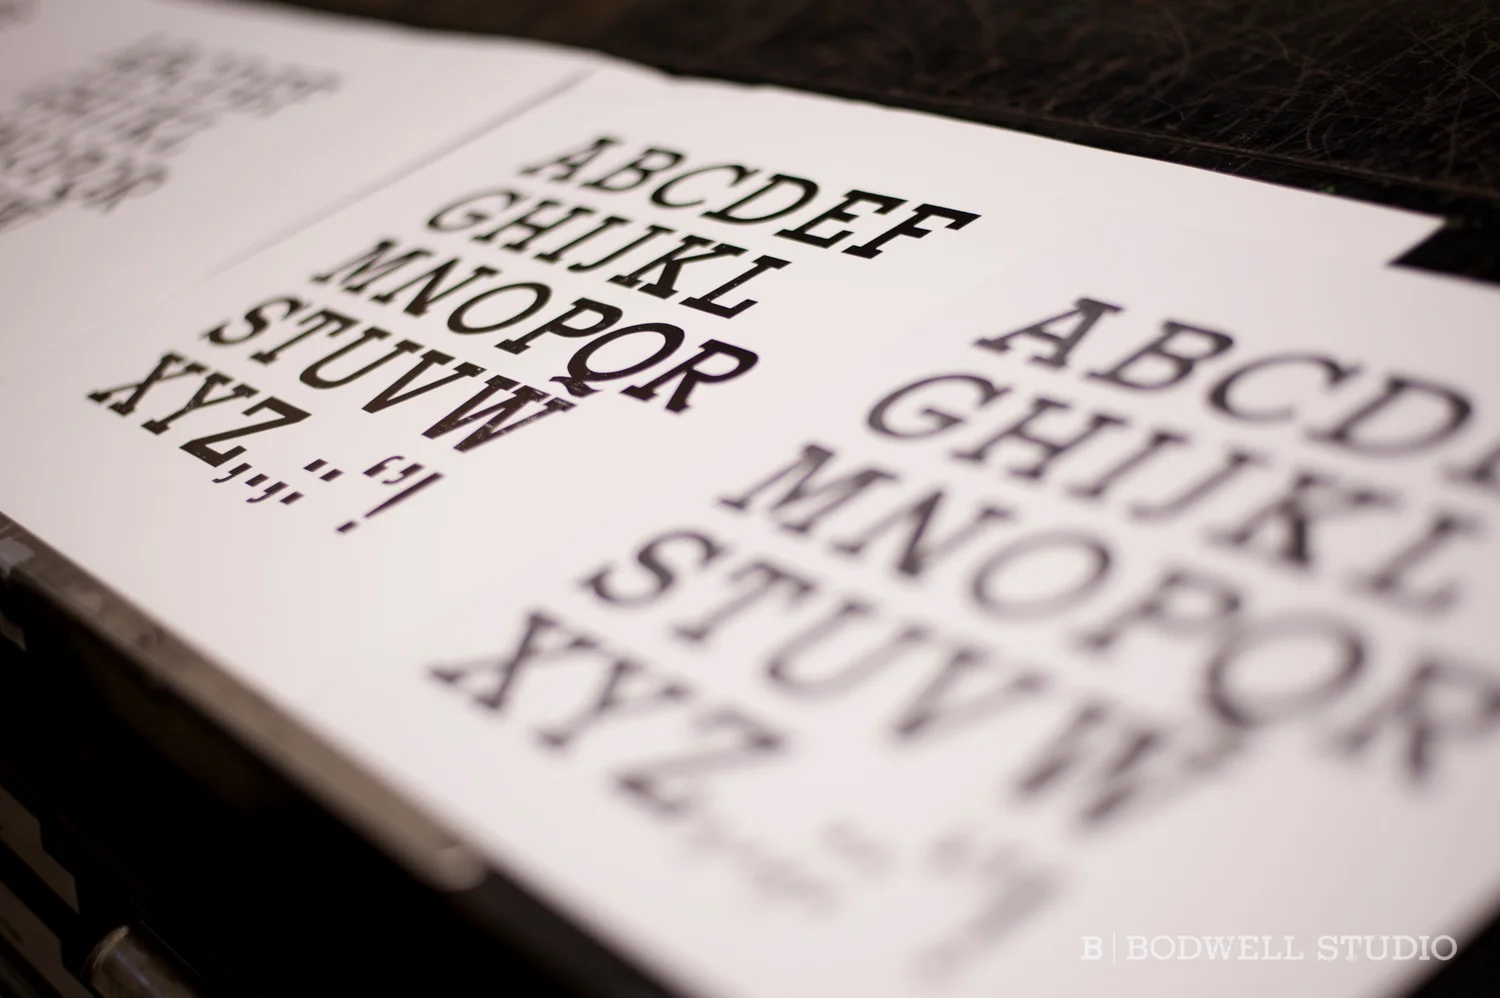 ABCDEF
GHIJKL
MNOPQR
STUVW
XYZ,.;:-‘’!
ABCD
GHIJKL
MNOPQR
STUVW
XYZ
B | BODWELL STUDIO